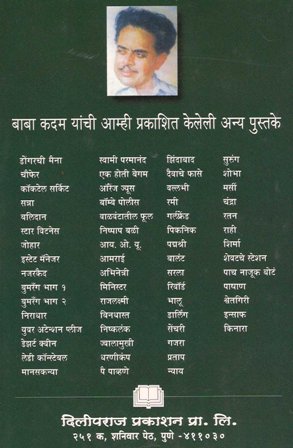 बाबा कदम यांची आम्ही प्रकाशित केलेली अन्य पुस्तके
डोंगरची मैना
चौफेर
कॉकटेल सर्किट
सन्ना
बलिदान
स्टार विटनेस
जोहार
इस्टेट मॅनेजर
नजरकैद
बुमरँग भाग १
बुमरँग भाग २
निराधार
युवर अटेन्शन प्लीज
डेझर्ट क्वीन
लेडी कॉन्स्टेबल
मानसकन्या
स्वामी परमानंद
एक होती बेगम
ऑरेंज ज्यूस
बॉम्बे पोलीस
वाळवंटातील फूल
निष्पाप बळी
आय. ओ. यू.
आमराई
अभिनेत्री
मिनिस्टर
राजलक्ष्मी
बिनधास्त
निष्कलंक
ज्वालामुखी
धरणीकंप
पै पाव्हणे
झिंदाबाद
दैवाचे फासे
वल्लभी
रमी
गर्लफ्रेंड
पिकनिक
पद्मश्री
बालंट
सरला
रिवॉर्ड
भालू
डार्लिंग
सेंचरी
गजरा
प्रताप
न्याय
सुरुंग
शोभा
मर्सी
चंद्रा
रतन
राही
शिर्मा
शेवटचे स्टेशन
पाच नाजूक बोटं
पाषाण
श्वेतगिरी
इन्साफ
किनारा
दिलीपराज प्रकाशन प्रा. लि.
२५१ क, शनिवार पेठ, पुणे - ४११०३०